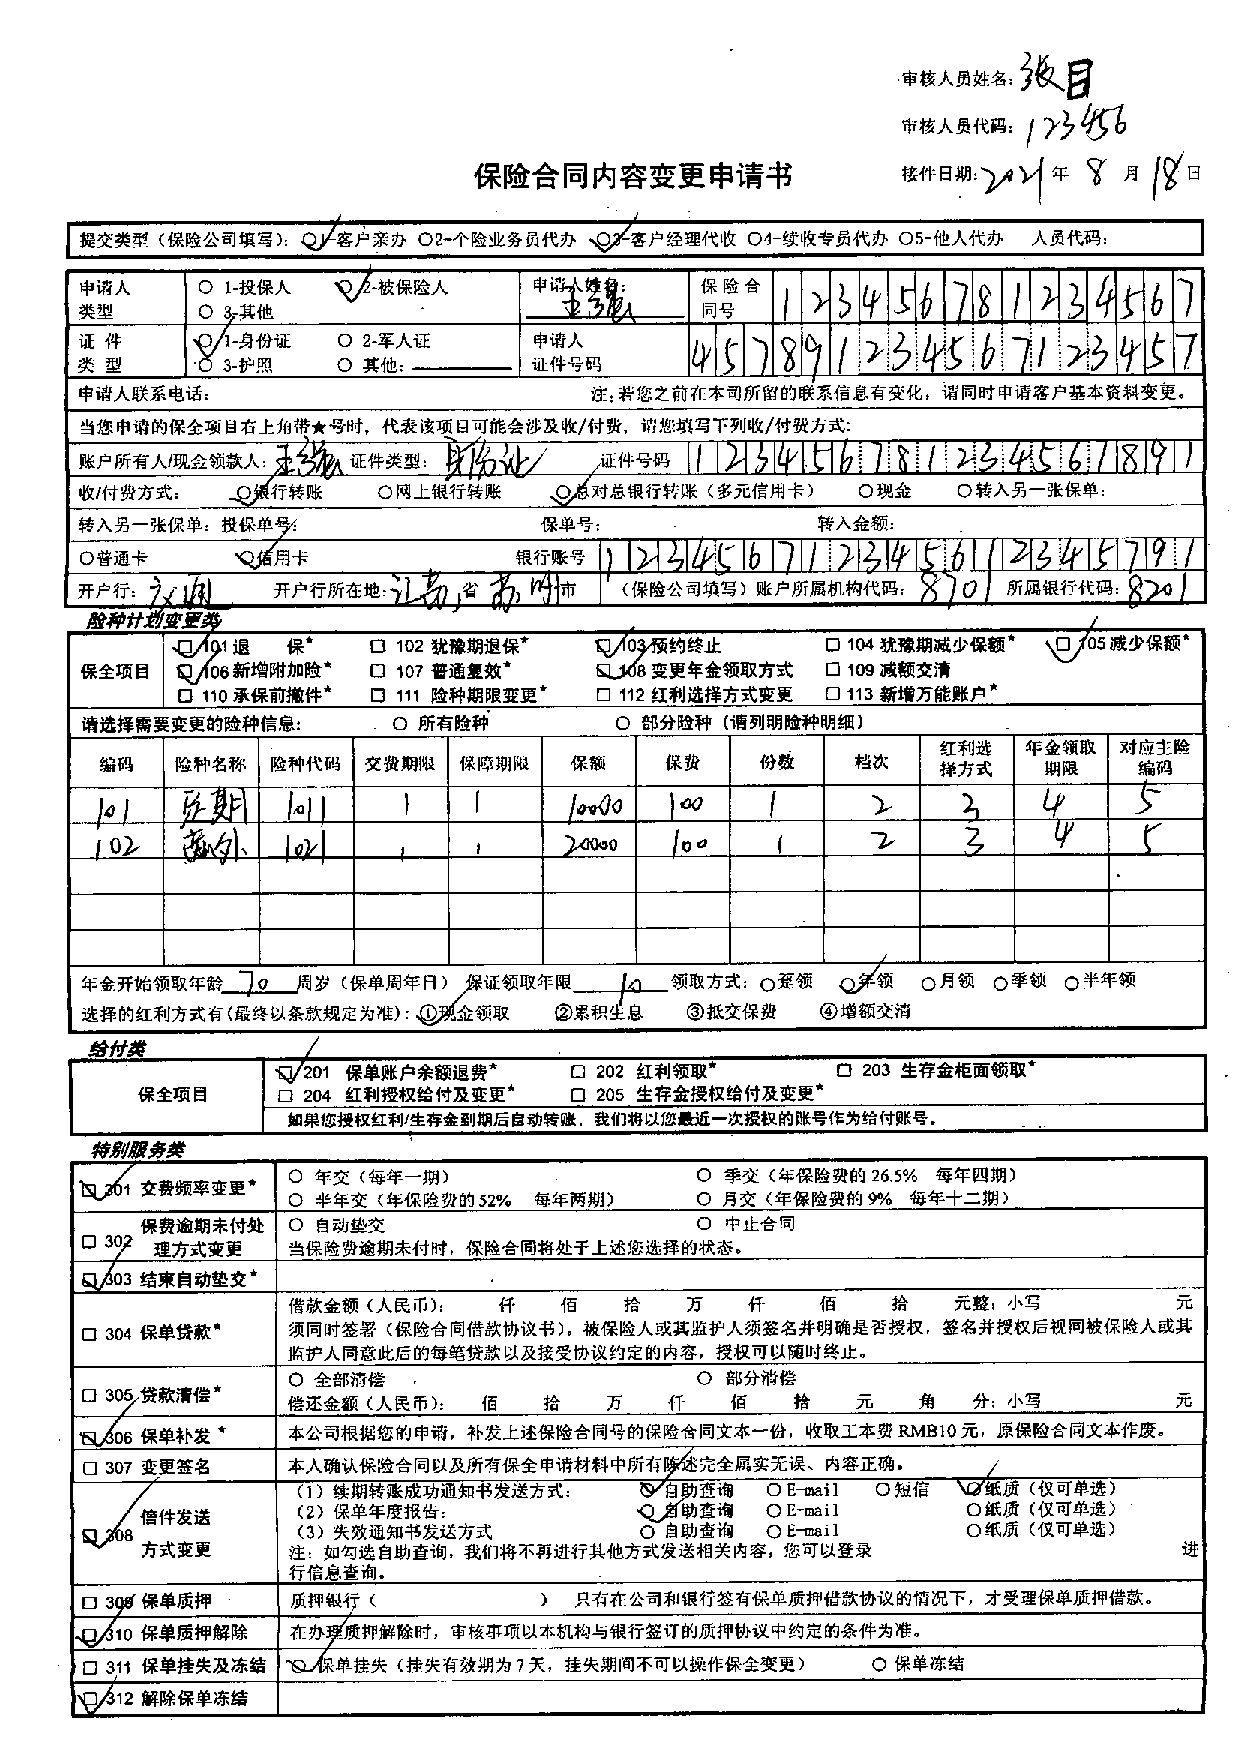 审核人员姓名:张目
审核人员代码:123456
保险合同内容变更申请书
接件日期:2021年8月18日
提交类型(保险公司填写): 1-客户亲办 2-个险业务员代办 3-客户经理代收 4-续收专员代办 5-他人代办 人员代码:
申请人类型 1-投保人 2-被保险人 3-其他 申请人姓名:王强 保险合同号 123456781234567
证件类型 1-身份证 2-军人证 3-护照 其他: 申请人证件号码 457891234567123457
申请人联系电话: 注:若您之前在本司所留的联系信息有变化,请同时申请客户基本资料变更。
当您申请的保全项目右上角带★号时,代表该项目可能会涉及收/付费,请您填写下列收/付费方式:
账户所有人/现金领款人:王强 证件类型:身份证 证件号码 123456781234567891
收/付费方式: 银行转账 网上银行转账 总对总银行转账(多元信用卡) 现金 转入另一张保单:
转入另一张保单:投保单号: 保单号: 转入金额:
普通卡 信用卡 银行账号 123456712345612345791
开户行: 开户行所在地:江苏省苏州市 (保险公司填写)账户所属机构代码:8701 所属银行代码:8201
险种计划变更类
101退 保* 102 犹豫期退保* 103预约终止 104 犹豫期减少保额* 105减少保额*
保全项目 106新增附加险* 107 普通复效* 108 变更年金领取方式 109 减额交清
110 承保前撤件* 111 险种期限变更* 112 红利选择方式变更 113 新增万能账户*
请选择需要变更的险种信息: 所有险种 部分险种(请列明险种明细)
编码 险种名称 险种代码 交费期限 保障期限 保额 保费 份数 档次 红利选择方式 年金领取期限 对应主险编码
101 定期 1011 1 1 10000 100 1 2 3 4 5
102 意外 1021 1 1 20000 100 1 2 3 4 5
年金开始领取年龄70周岁(保单周年日) 保证领取年限10 领取方式: 趸领 年领 月领 季领 半年领
选择的红利方式有(最终以条款规定为准): ①现金领取 ②累积生息 ③抵交保费 ④增额交清
给付类
保全项目 201 保单账户余额退费* 202 红利领取* 203 生存金柜面领取*
204 红利授权给付及变更* 205 生存金授权给付及变更*
如果您授权红利/生存金到期后自动转账,我们将以您最近一次授权的账号作为给付账号。
特别服务类
301 交费频率变更* 年交(每年一期) 季交(年保险费的26.5% 每年四期)
半年交(年保险费的52% 每年两期) 月交(年保险费的9% 每年十二期)
302 保费逾期未付处理方式变更 自动垫交 中止合同
当保险费逾期未付时,保险合同将处于上述您选择的状态。
303 结束自动垫交*
304 保单贷款* 借款金额(人民币): 仟 佰 拾 万 仟 佰 拾 元整;小写 元
须同时签署(保险合同借款协议书)。被保险人或其监护人须签名并明确是否授权,签名并授权后视同被保险人或其
监护人同意此后的每笔贷款以及接受协议约定的内容,授权可以随时终止。
305 贷款清偿* 全部清偿 部分清偿
偿还金额(人民币): 佰 拾 万 仟 佰 拾 元 角 分;小写 元
306 保单补发* 本公司根据您的申请,补发上述保险合同号的保险合同文本一份,收取工本费RMB10元,原保险合同文本作废。
307 变更签名 本人确认保险合同以及所有保全申请材料中所有陈述完全属实无误、内容正确。
308 信件发送方式变更 (1)续期转账成功通知书发送方式: 自助查询 E-mail 短信 纸质(仅可单选)
(2)保单年度报告: 自助查询 E-mail 纸质(仅可单选)
(3)失效通知书发送方式 自助查询 E-mail 纸质(仅可单选)
注:如勾选自助查询,我们将不再进行其他方式发送相关内容,您可以登录 进
行信息查询。
309 保单质押 质押银行( ) 只有在公司和银行签有保单质押借款协议的情况下,才受理保单质押借款。
310 保单质押解除 在办理质押解除时,审核事项以本机构与银行签订的质押协议中约定的条件为准。
311 保单挂失及冻结 保单挂失(挂失有效期为7天,挂失期间不可以操作保全变更) 保单冻结
312 解除保单冻结